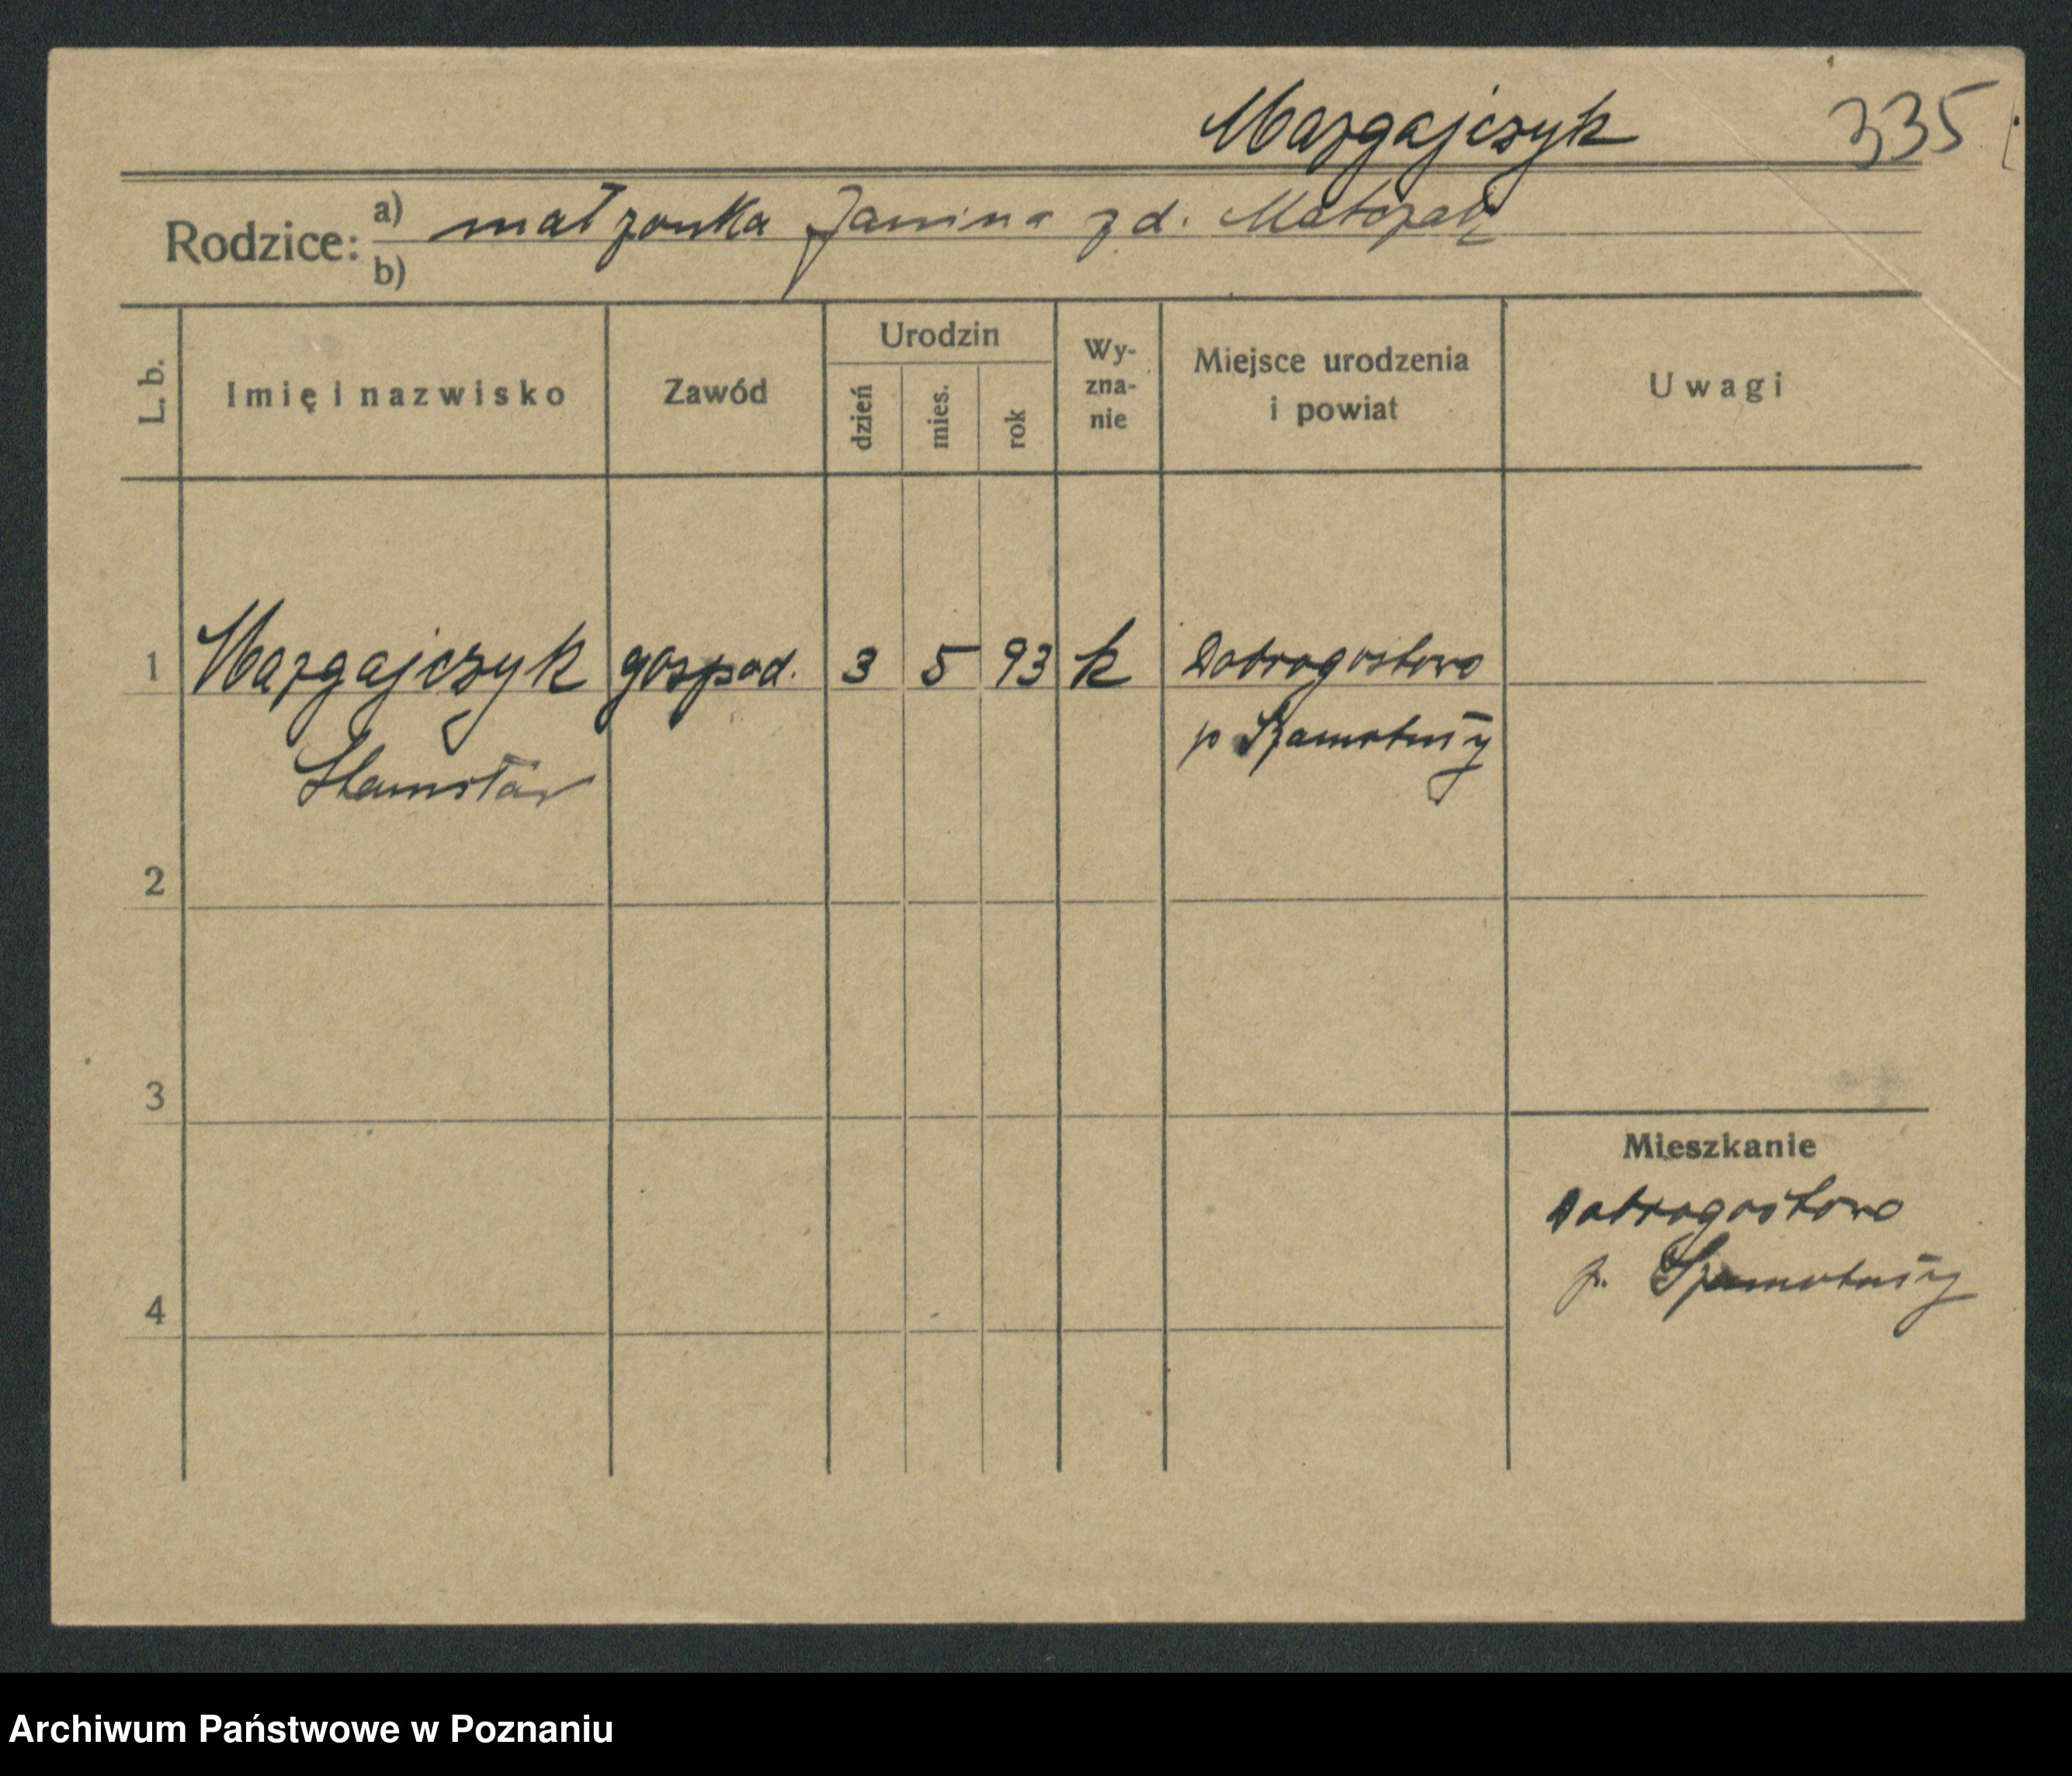 Mazgajczyk 335
Rodzice: a) małzonka Janina zd.
b)
L. b. Imię i nazwisko Zawód Urodzin dzień mies. rok Wy-zna-nie Miejsce urodzenia i powiat Uwagi
1 Mazgajczyk gospod. 3 5 93 k Dobrogostowo
p Szamotuły
Stanisław
2
3
Mieszkanie
Dobrogostowo
p. Szamotuły
4
Archiwum Państwowe w Poznaniu